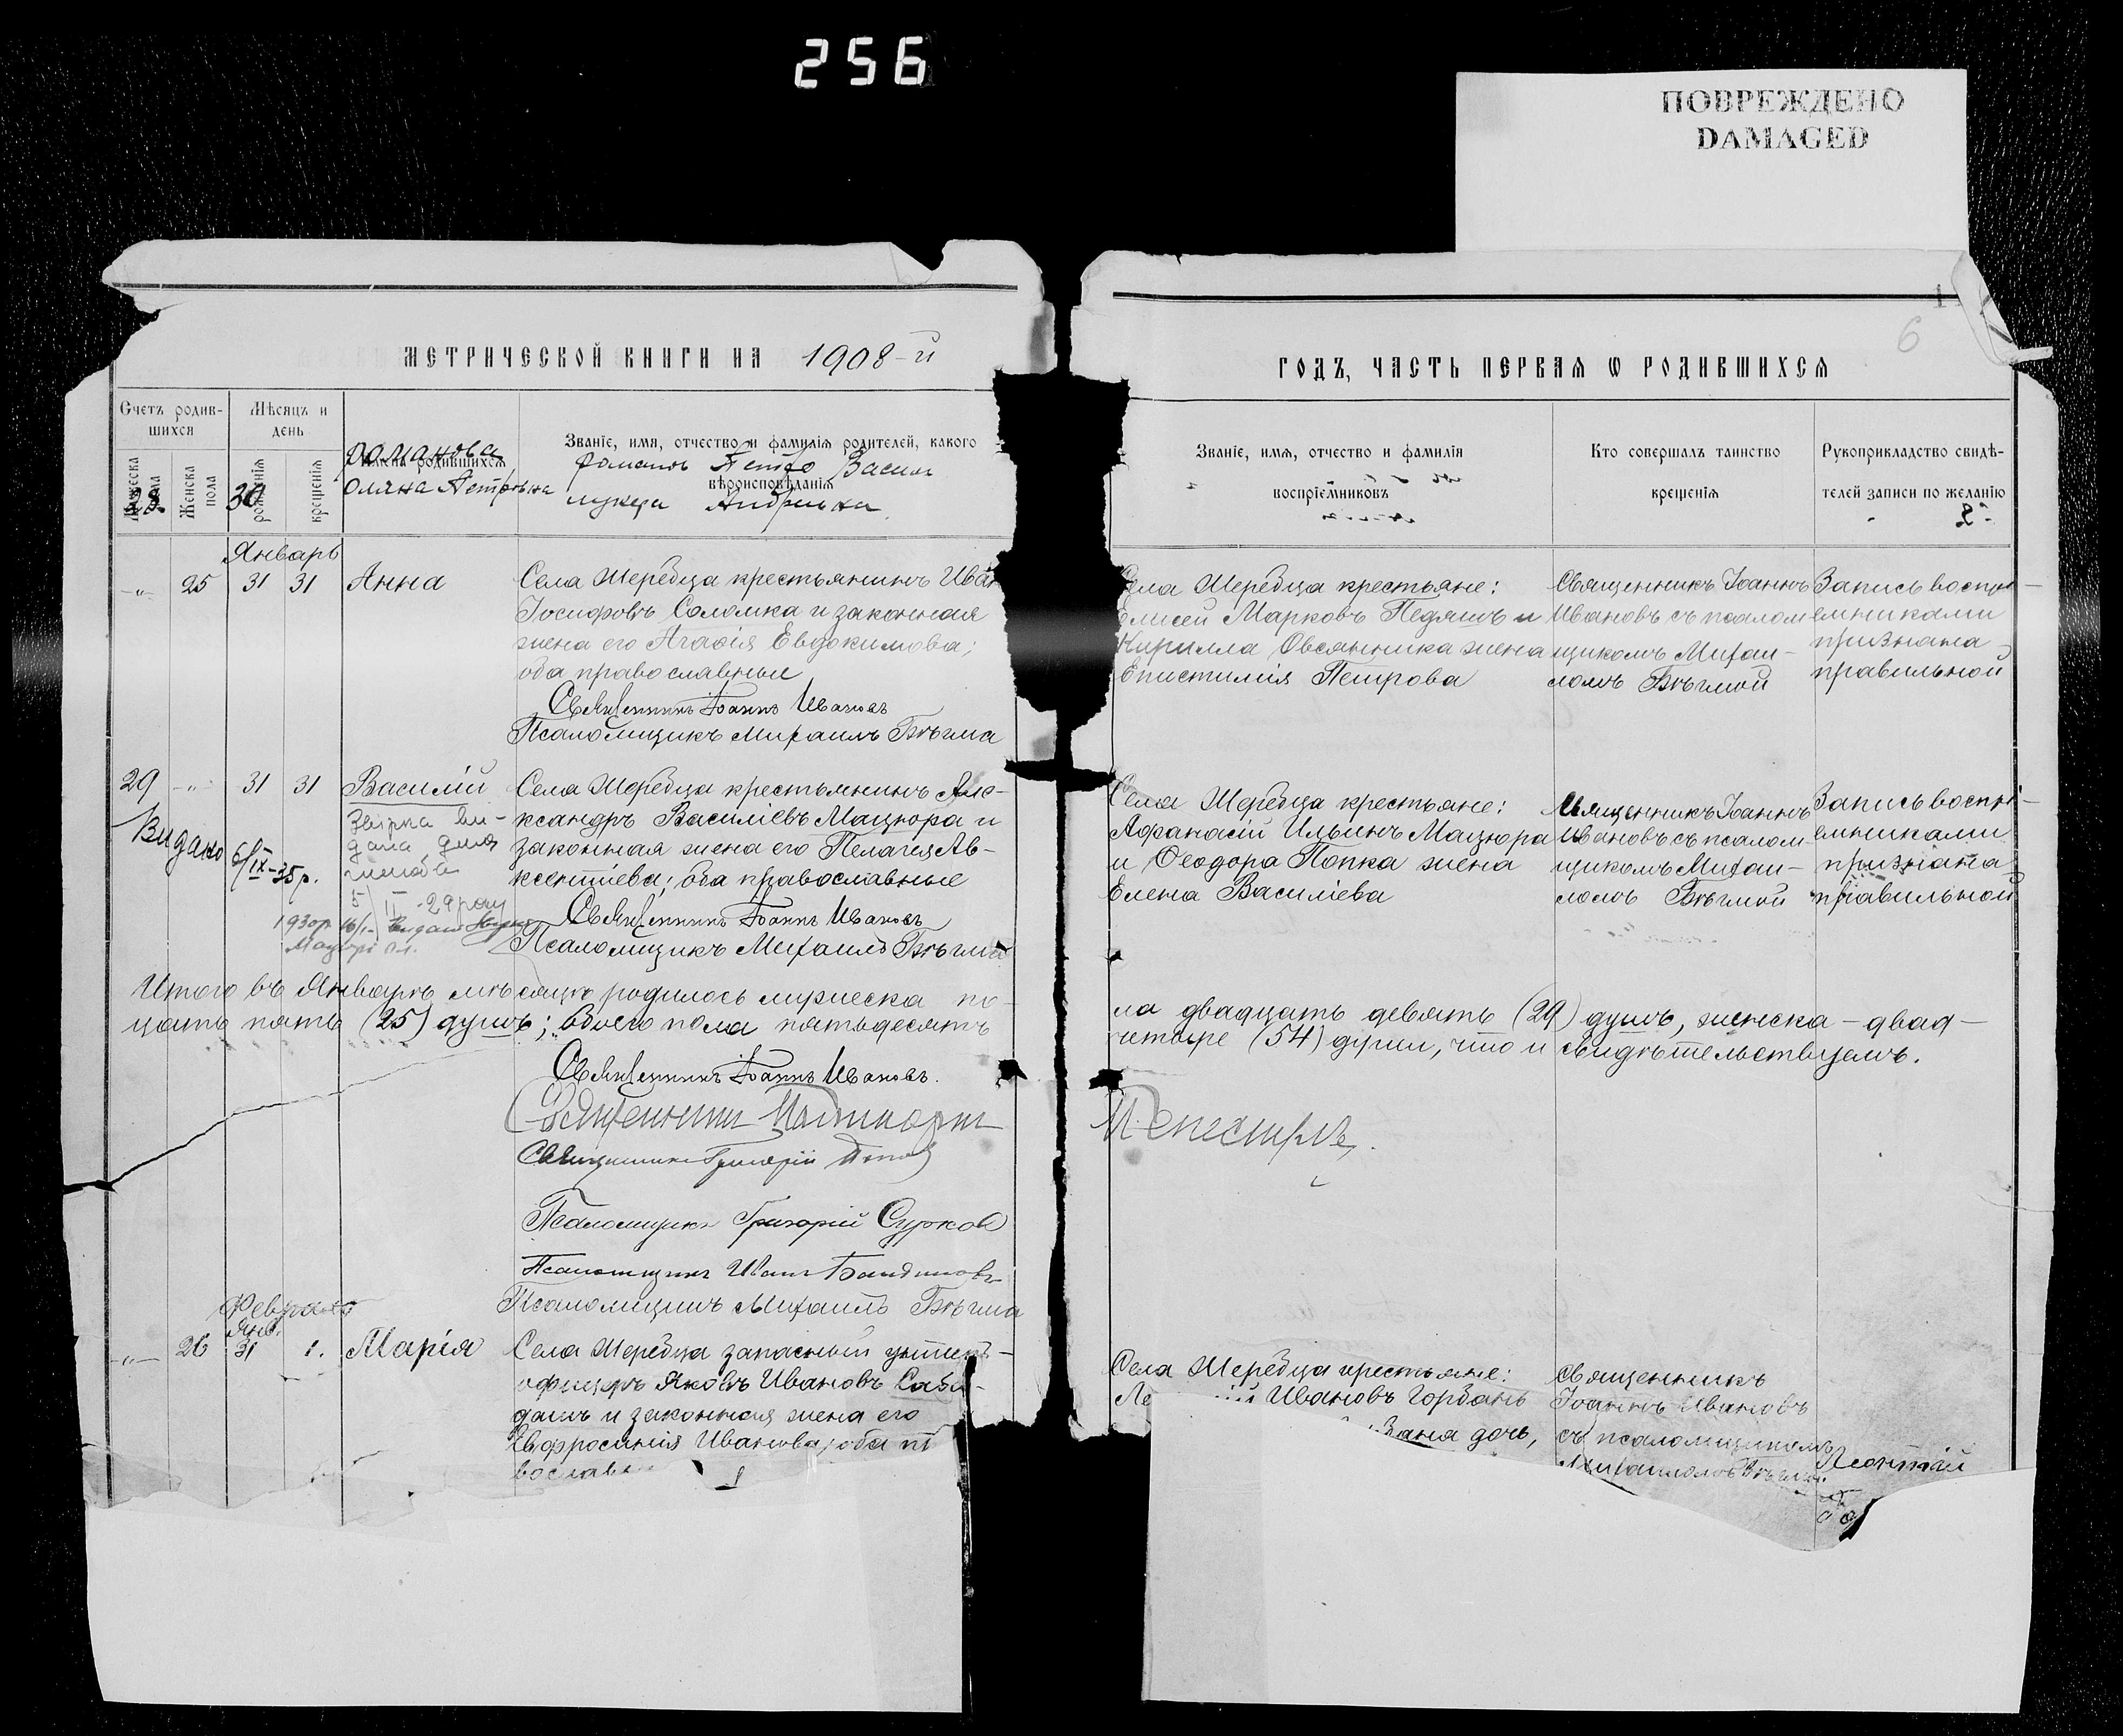 256
ПОВРЕЖДЕНО
DAMAGED
МЕТРИЧЕСКОЙ КНИГИ НА 1908-й
Счетъ родив-
шихся
Мѣсяцъ и
день
Мужеска
пола
Женска
пола
рожденія
крещенія
Имена родившихся
Званіе, имя, отчество и фамилія родителей, какого
вѣроисповѣданія
28
30
Романова
Петро
Январь
-„- 25 31 31 Анна
Села Шеребца крестьянинъ Иван
Іосифовъ Соломка и законная
жена его Агафія Евдокимова;
оба православные
Священникъ Іоаннъ Ивановъ
Псаломщикъ Михаилъ Бѣгма
29 -„- 31 31 Василій
Села Шеребца крестьянинъ Але-
ксандръ Василіевъ Мацюра и
законная жена его Пелагея Ав-
ксентіева; оба православные
Священникъ Іоаннъ Ивановъ
Псаломщикъ Михаилъ Бѣгма
Видано
6/IX-35р.
5/II-29 року
1930р.
Итого въ Январѣ мѣсяцѣ родилось мужеска по-
цать пять (25) душъ; обоего пола пятьдесятъ
Священникъ Іоаннъ Ивановъ.
Священникъ
Священникъ Григорій
Псаломщикъ Григорій Сурков
Псаломщикъ Иванъ
Псаломщикъ Михаилъ Бѣгма
Февраль
Янв.
-„- 26 31 1. Марія
Села Шеребца запасный унтеръ-
офицеръ Яковъ Ивановъ
и законная жена его
Евфросинія Ивановна; оба п
вославн
ГОДЪ, ЧАСТЬ ПЕРВАЯ Ѡ РОДИВШИХСЯ
6
Званіе, имя, отчество и фамилія
воспріемниковъ
Кто совершалъ таинство
крещенія
Рукоприкладство свидѣ-
телей записи по желанію
Села Шеребца крестьяне:
Елисей Марковъ Педяшъ и
Кирилла Овсянника жена
Епистимія Петрова
Священникъ Іоаннъ
Ивановъ съ псалом
щикомъ Михаи-
ломъ Бѣгмой
Запись воспрі-
емниками
признана
правильной
Села Шеребца крестьяне:
Афанасій Ильинъ Мацюра
и Ѳеодора Попка жена
Елена Василіева
Священникъ Іоаннъ
Ивановъ съ псалом-
щикомъ Михаи-
ломъ Бѣгмой
Запись воспрі-
емниками
признана
правильной
ла двадцать девять (29) душъ, женска - двад-
четыре (54) души, что и свидѣтельствуемъ.
Села Шеребца крестьяне:
Ле ій Ивановъ Горбань
вана дочь,
Священникъ
Іоаннъ Ивановъ
съ псаломщикомъ
Михаиломъ Бѣгмой.